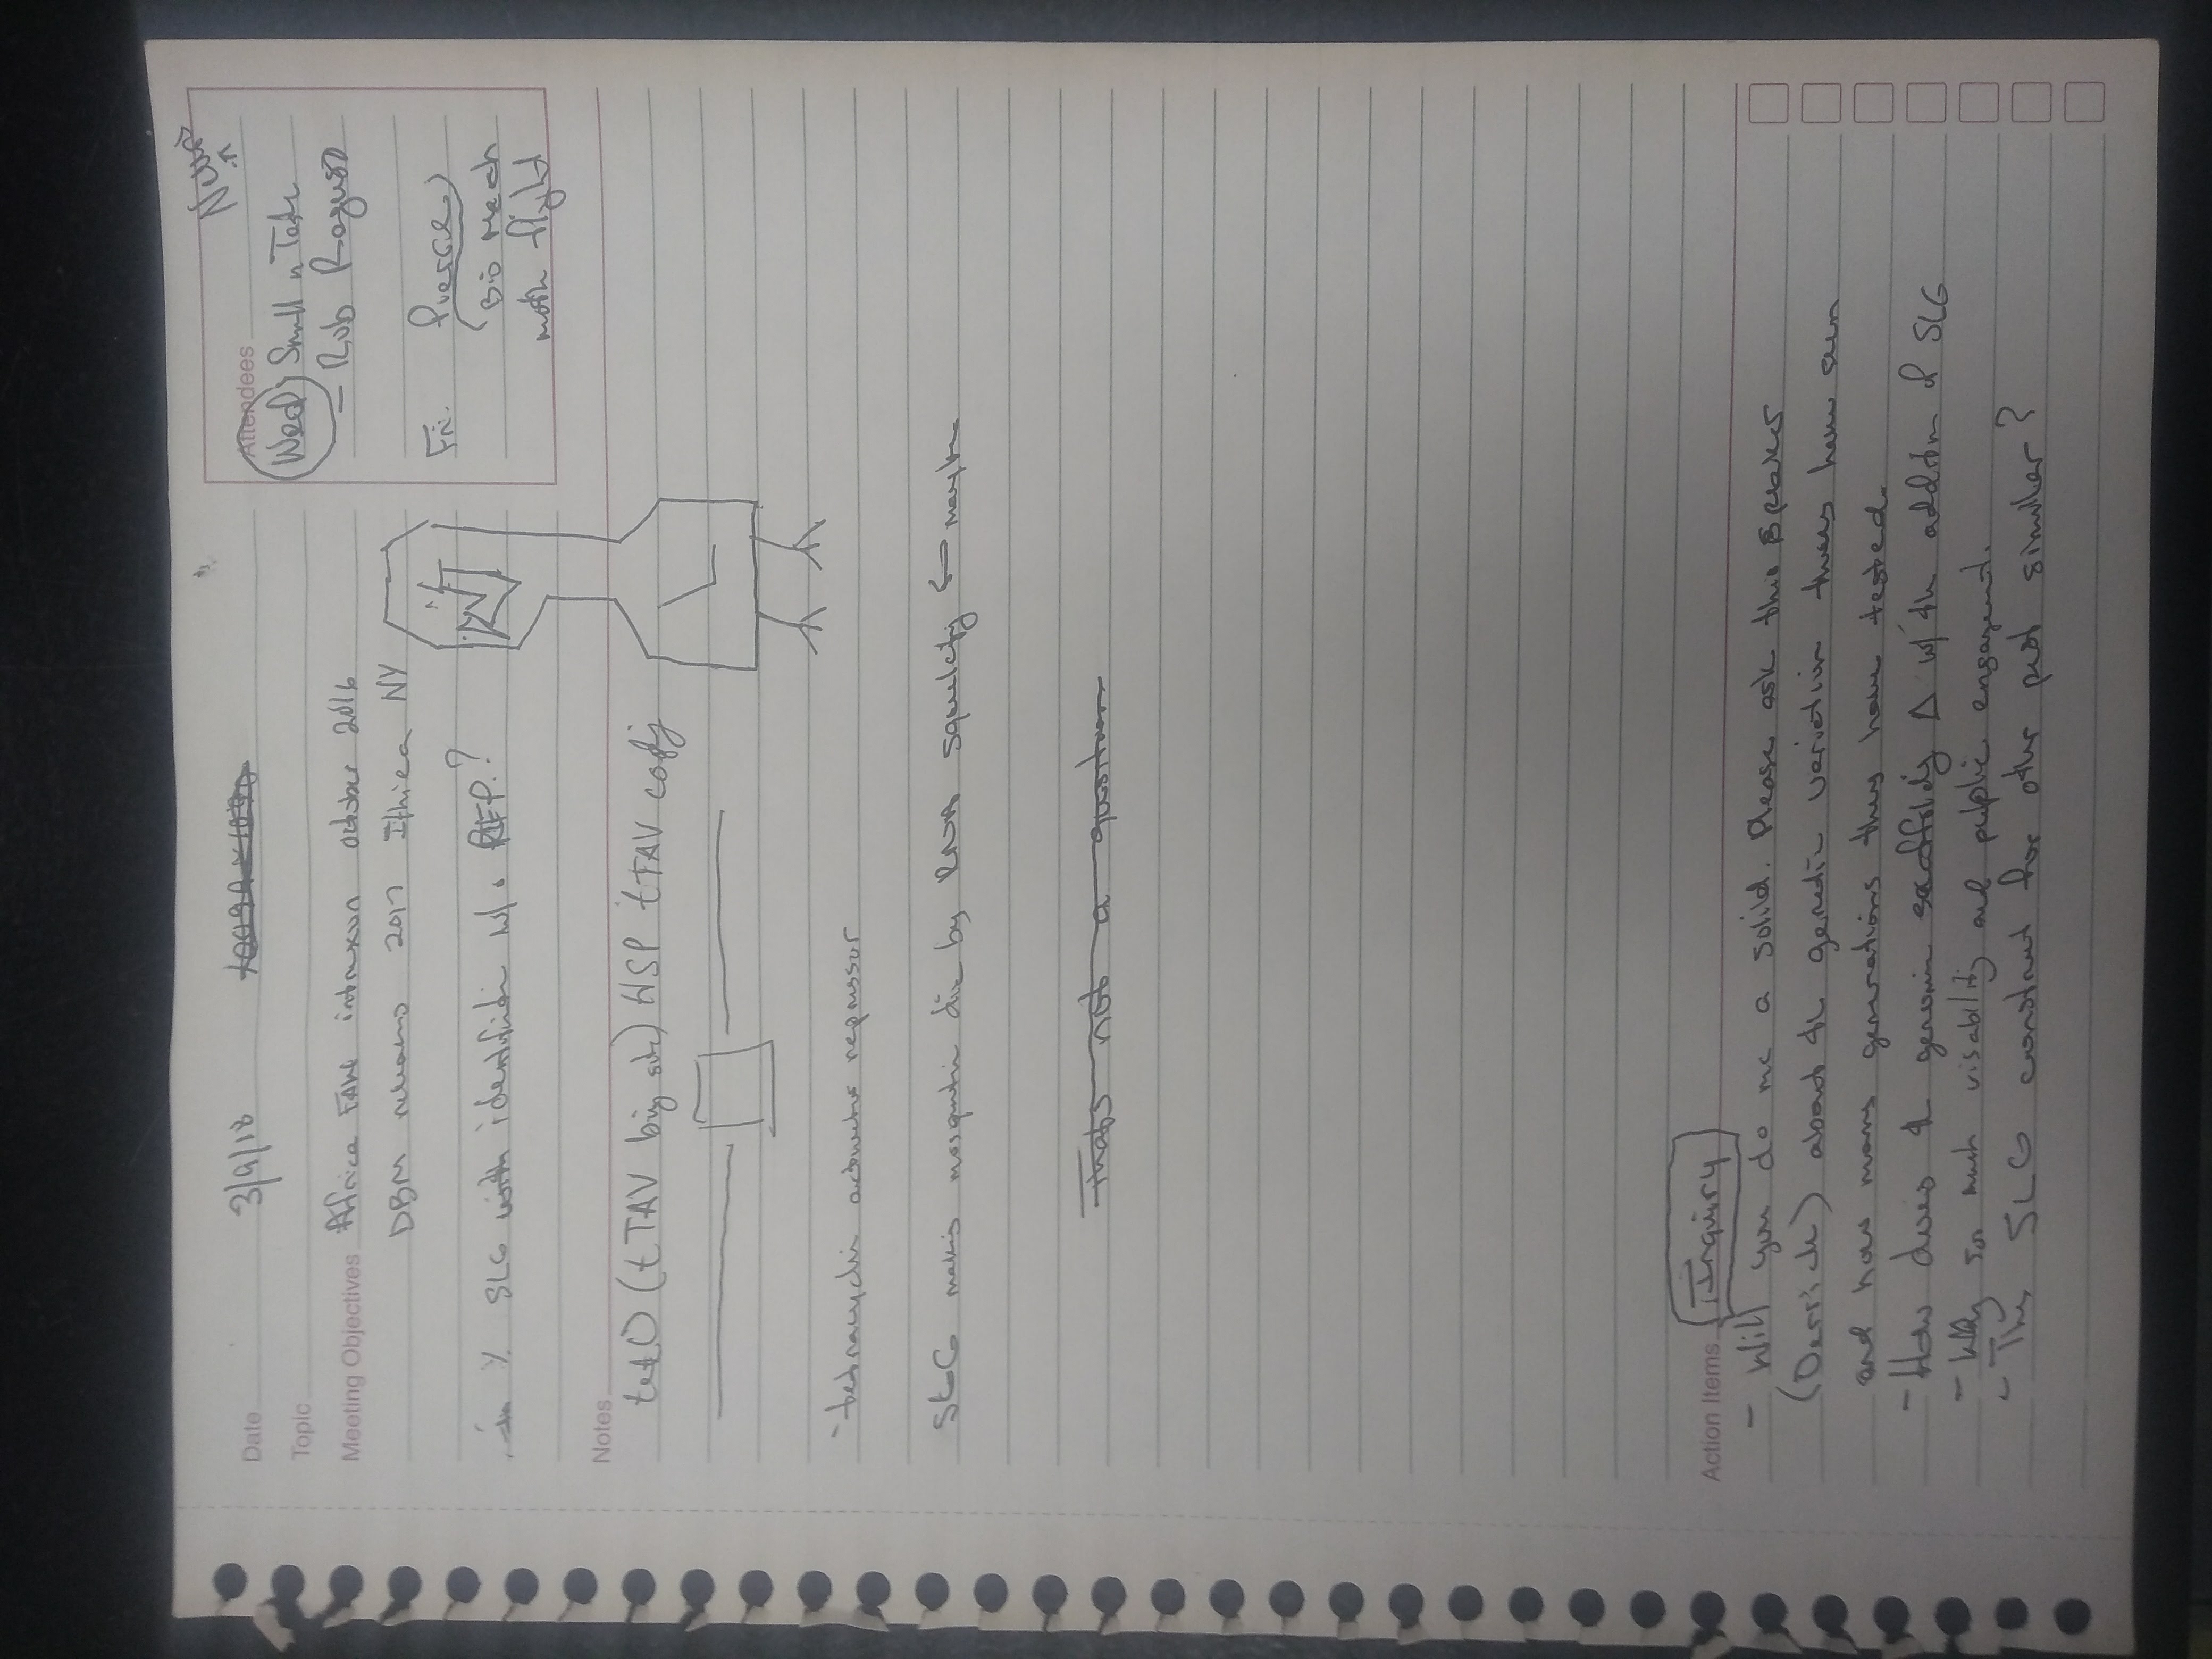 Date 3/9/18
Topic
Meeting Objectives Africa FAW october 2016
DBM 2017 Ithica NY
% SLG with w/
Attendees
Wed Small n
- Rob Raguso
Fri: Pierce
Bio Mech
moth flight
Notes
tetO (tTAV big site) HSP tTAV
repressor
SLG makes die by RNA maybe
Thats not a question
Action Items Inquiry
- Will you do me a solid. Please ask this speaker
(Derrick) about the genetic variation have seen
and how many generations they have tested.
- How does the genomic scaffoldig Δ w/ the addition of SLG
- Why so much visability and public engagment.
- This SLG construct for other pest similar?